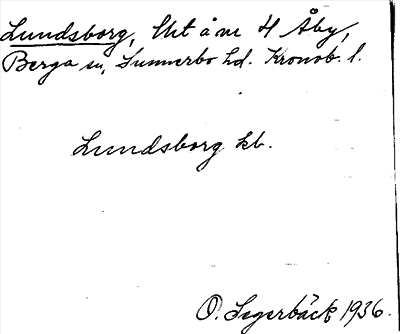 Lundsborg, lht å nr 4 Åby,
Berga sn, Sunnerbo hd. Kronob. l.
Lundsborg kb.
O. Segerbäck 1936.